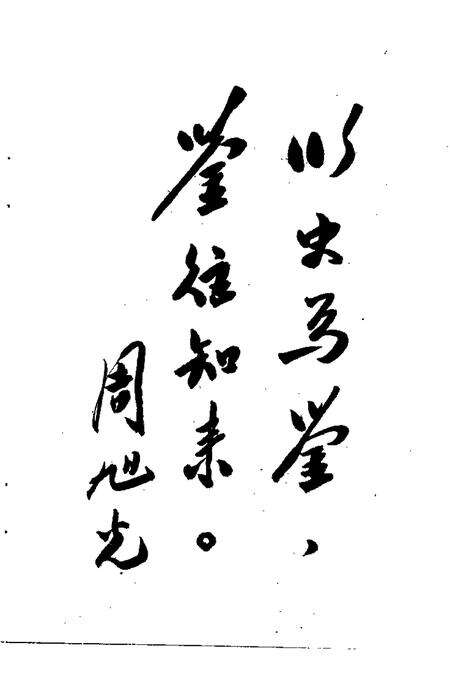 以史为鉴、
鉴往知来。
周旭光